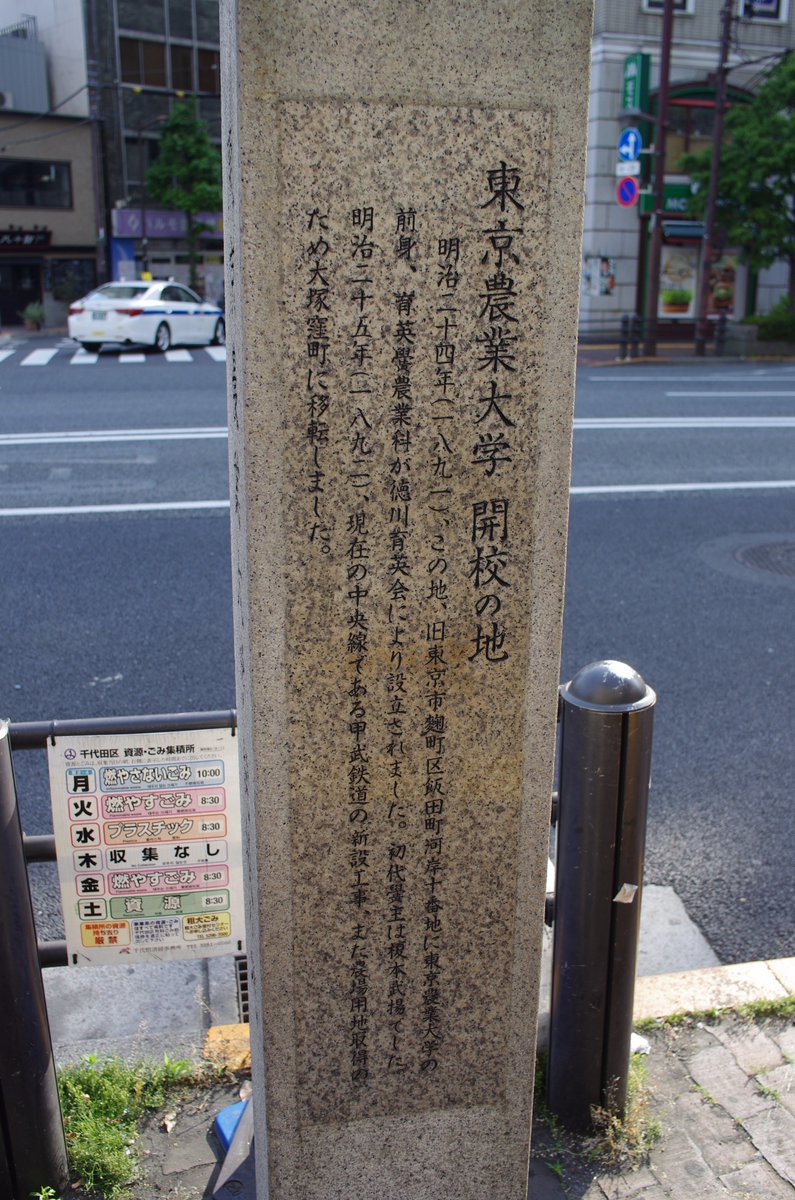 東京農業大学 開校の地
明治二十四年(一八九一)、この地、旧東京市麹町区飯田町河岸十番地に東京農業大学の
前身、育英黌農業科が徳川育英会により設立されました。初代黌主は榎本武揚でした
明治二十五年(一八九二)、現在の中央線である甲武鉄道の新設工事、また農場用地取得の
ため大塚窪町に移転しました。
千代田区 資源・ごみ集積所
月 燃やさないごみ 10:00
火 燃やすごみ 8:30
水 プラスチック 8:30
木 収集なし
金 燃やすごみ 8:30
土 資源 8:30
集積所の資源
持ち去り
厳禁
粗大ごみ